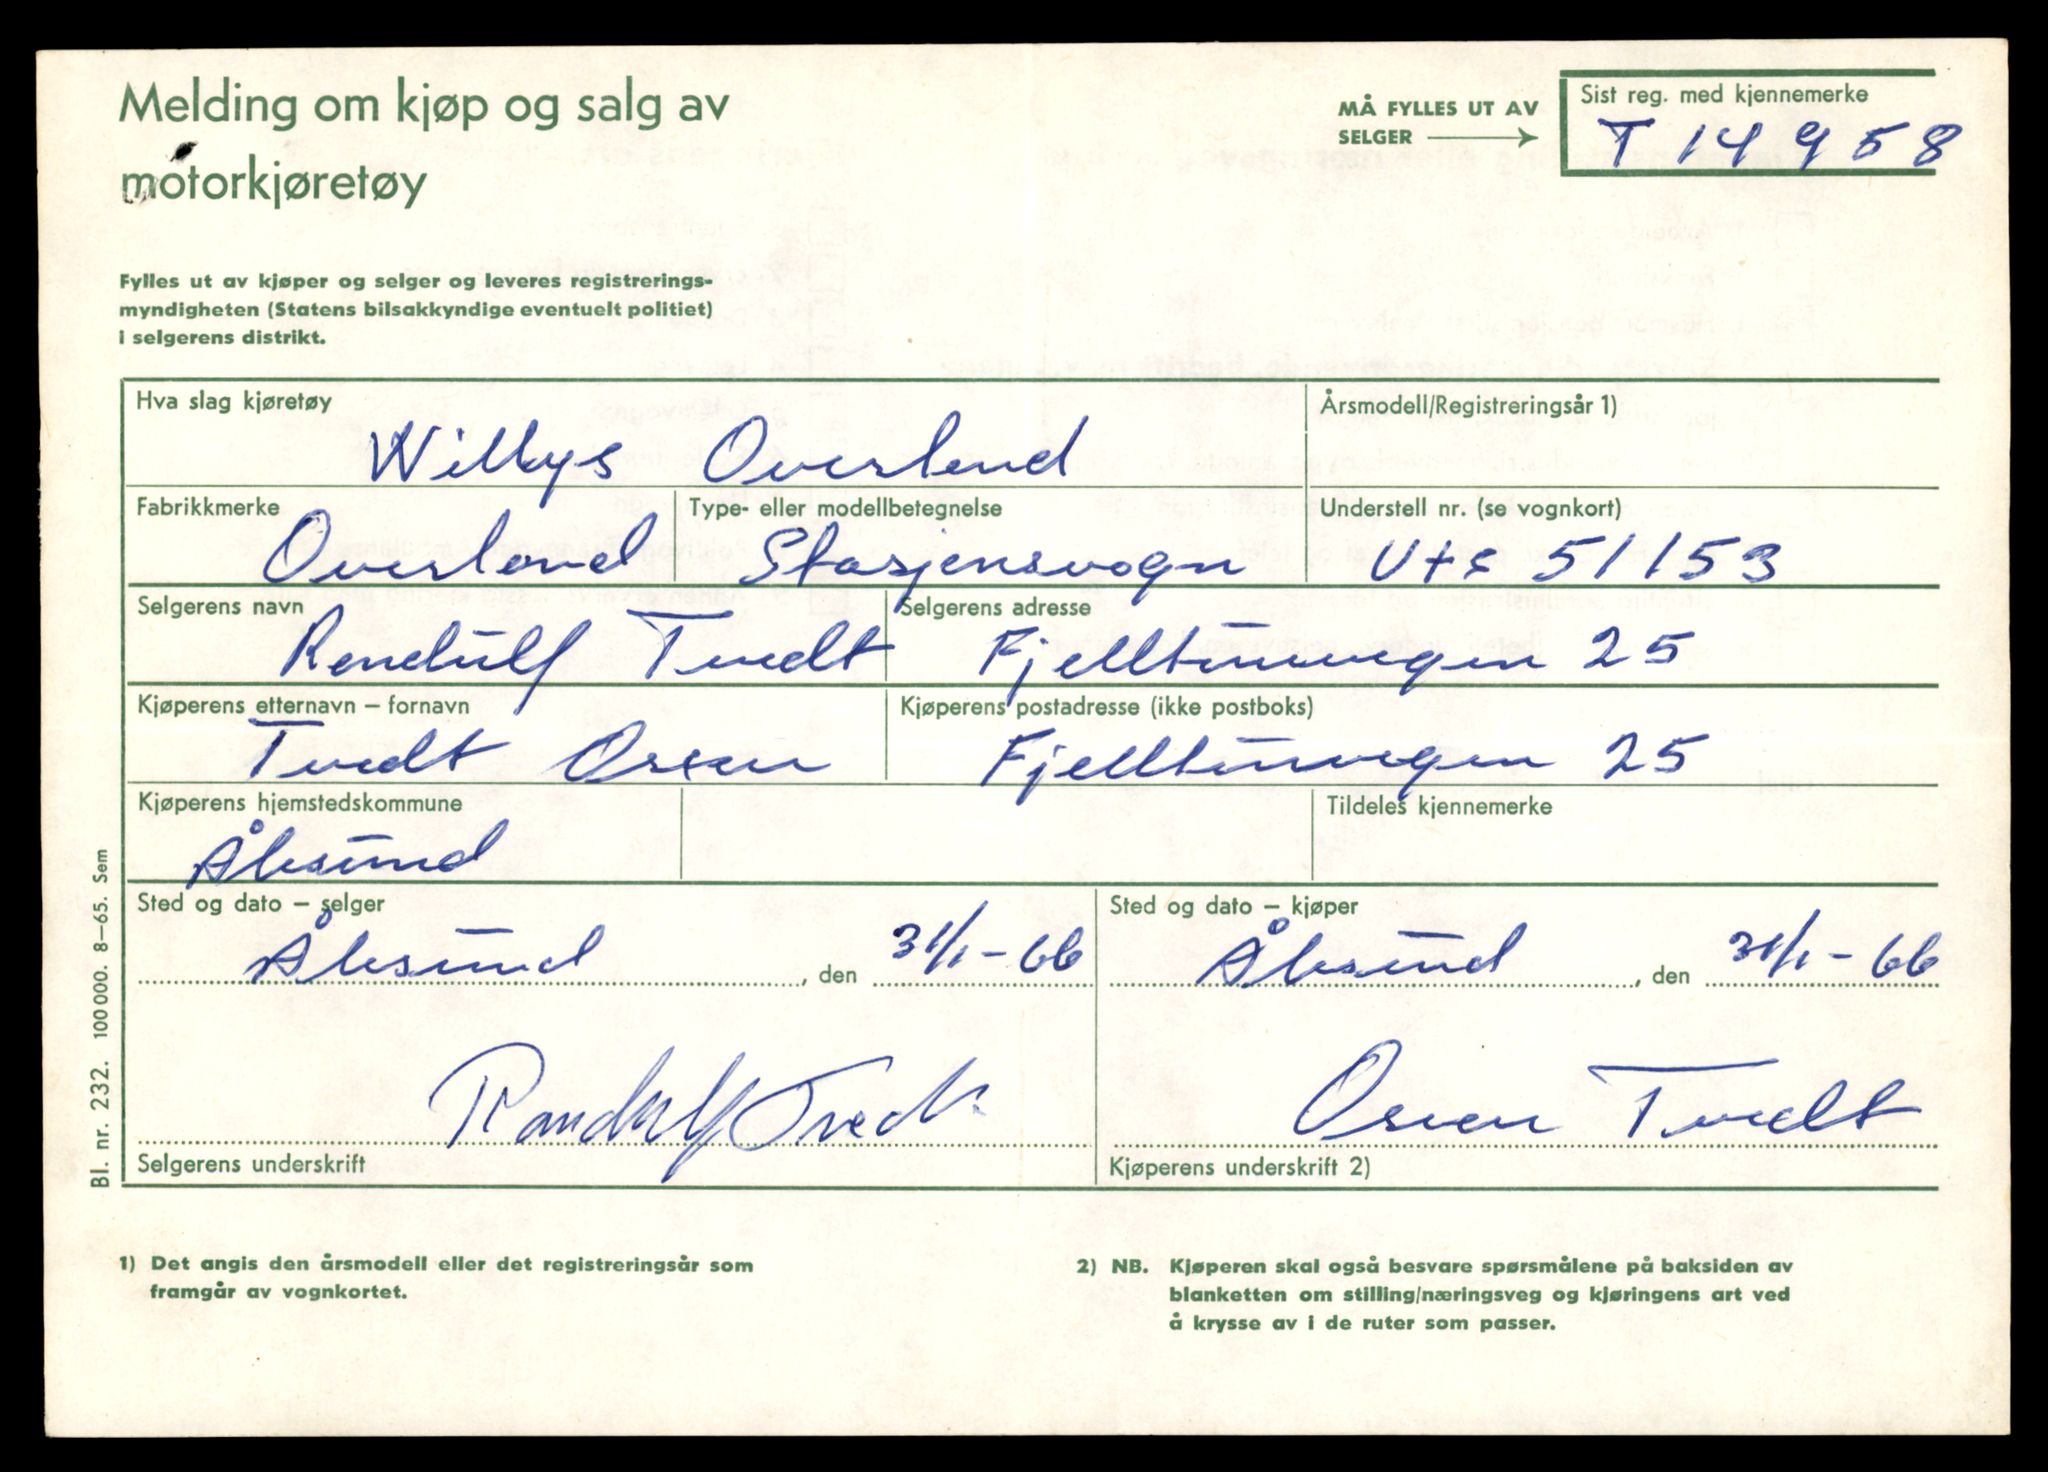 Melding om kjøp og salg av
motorkjøretøy
MÅ FYLLES UT AV
SELGER
Sist reg. med kjennemerke
T 14958
Fylles ut av kjøper og selger og leveres registrerings-
myndigheten (Statens bilsakkyndige eventuelt politiet)
i selgerens distrikt.
Hva slag kjøretøy
Willys Overland
Årsmodell/Registreringsår 1)
Fabrikkmerke
Overland
Type- eller modellbetegnelse
Stasjonsvogn
Understell nr. (se vognkort)
51153
Selgerens navn
Randulf Tvedt
Selgerens adresse
Fjelltunvegen 25
Kjøperens etternavn – fornavn
Tvedt
Kjøperens postadresse (ikke postboks)
Fjelltunvegen 25
Kjøperens hjemstedskommune
Ålesund
Tildeles kjennemerke
Sted og dato – selger
Ålesund, den 31/1-66
Sted og dato – kjøper
Ålesund, den 31/1-66
Randulf Tvedt
Selgerens underskrift
Tvedt
Kjøperens underskrift 2)
Bl. nr. 232. 100000. 8–65. Sem
1) Det angis den årsmodell eller det registreringsår som
framgår av vognkortet.
2) NB. Kjøperen skal også besvare spørsmålene på baksiden av
blanketten om stilling/næringsveg og kjøringens art ved
å krysse av i de ruter som passer.